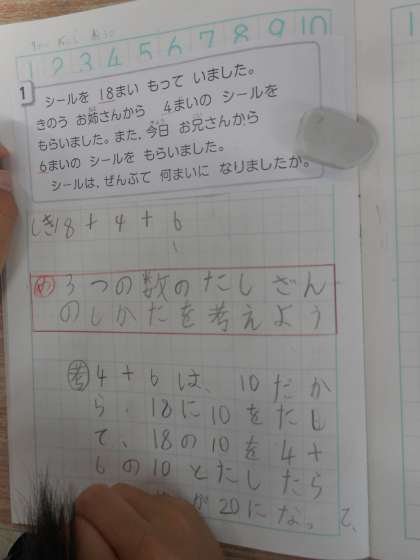 1 2 3 4 5 6 7 8 9 10
1 シールを 18まい もって いました。
きのう お姉さんから 4まいの シールを
もらいました。また、今日 お兄さんから
6まいの シールを もらいました。
シールは、ぜんぶで 何まいに なりましたか。
しき 18 + 4 + 6
め 3つの数のたしざん
のしかたを考えよう
考 4 + 6 は、10 だか
ら、18に10をたし
て、18の10を4+
6の10とたしたら
が20になって、